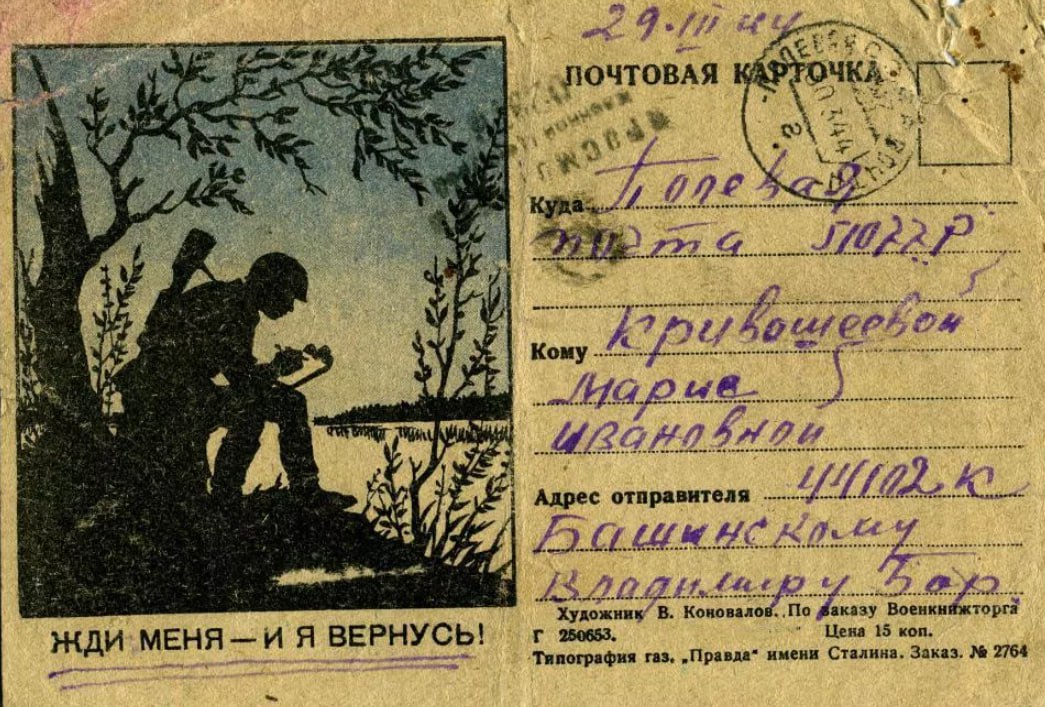 29.III 44
ПОЧТОВАЯ КАРТОЧКА
ПОЛЕВАЯ ПОЧТА
Куда Полевая
почта 51077Р
Кому Кривошеевой
Марие
Ивановной
Адрес отправителя 44102 К
Башинскому
Владимиру Бор.
ЖДИ МЕНЯ — И Я ВЕРНУСЬ!
Художник В. Коновалов. По заказу Военкнижторга
Г 250653. Цена 15 коп.
Типография газ. „Правда" имени Сталина. Заказ. № 2764